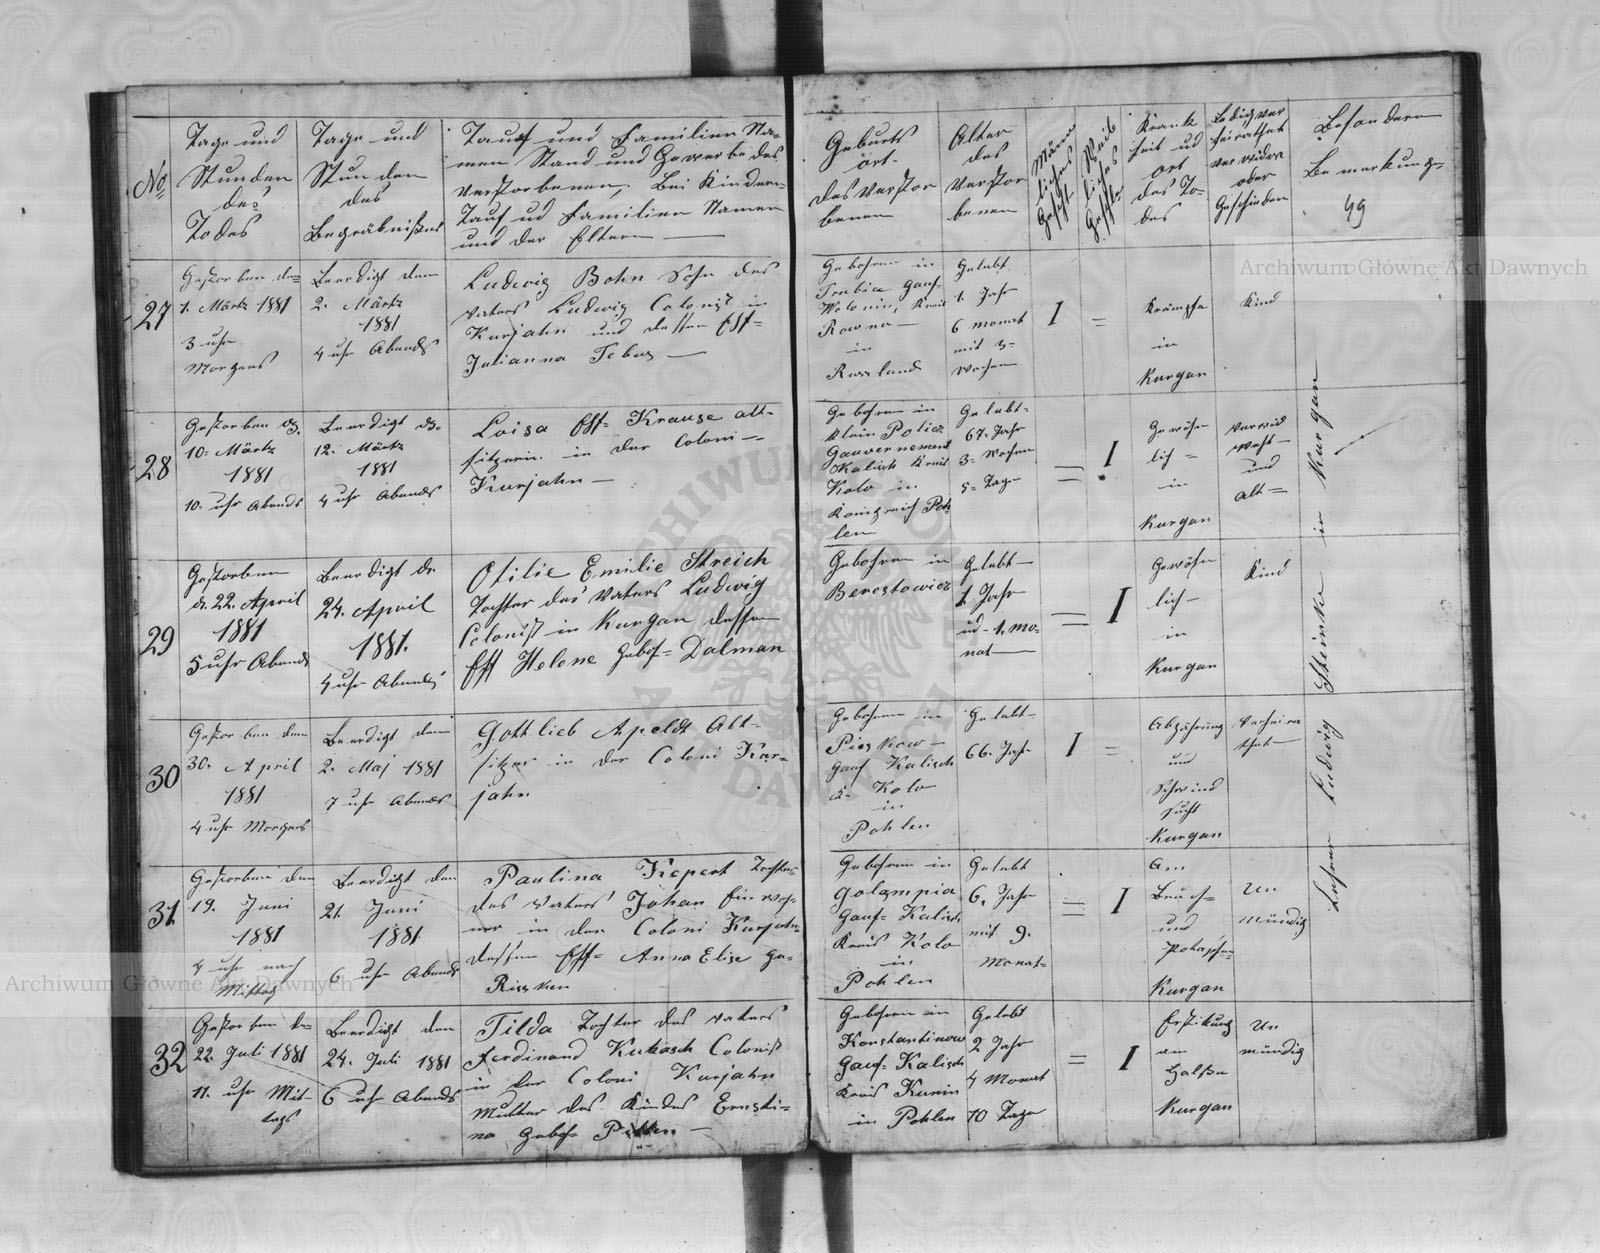 No
Tage und
Stunden
des
Todes
Tage und
Stunden
des
Begräbnißes
Tauf und Familien Na-
men Stand und Gewerbe des
verstorbenen, Bei Kindern
Tauf ud Familien Namen
und der Eltern —
Geburts
ort
des verstor
benen
Alter
des
verstor
benen
Männ
liches
Geschl.
Weib
liches
Geschl.
Krank
heit ud
ort
des To-
des
Ledig ver
heirathet
verwidw
oder
Geschieden
Besondere
Bemerkung-
49
27
Gestorben de=
1. Märtz 1881
3 uhr
Morgens
Beerdigt dem
2. Märtz
1881
4 uhr Abends
Ludwig Bohn Sohn des
Vaters Ludwig Colonist in
Kurjahn und dessen Eff=
Julianna
Gebohren in
Gouf=
Wolonin, Kreis
Rowno —
in
Russland
Gelebt
1. Jahr
6 monat
mit 3=
wochen
I
=
Krämpfe
in
Kurgan
Kind
28
Gestorben d.
10= Märtz
1881
10= uhr Abends
Beerdigt d=
12. Märtz
1881
4 uhr Abends
Loisa Eff= Krause alt=
sitzerin in der Coloni —
Kurjahn —
Gebohren in
Klein Policz
Gauvernement
Kalisch Kreis
Kolo in
Konigreich Poh
len
Gelebt=
67= Jahr
3= Wochen
5= Tage
=
I
Gewöhn
lich =
in
Kurgan
verwid
weht —
und
alt=
29
Gestorben
d. 22. April
1881
5 uhr Abends
Beerdigt de
24. April
1881.
4 uhr Abends
Otilie Emilie Streich
Tochter des Vaters Ludwig
Colonist in Kurgan dessen
Eff Helene Geboh= Dalman
Gebohren in
Berestowiec
Gelebt —
1 Jahr
ud - 1. mo-
nat —
=
I
Gewöhn
lich —
in
Kurgan
Kind
30
Gestorben dem
30. April
1881
4 uhr Morgens
Beerdigt dem
2. Maj 1881
7 uhr Abends
Gottlieb Apeldt Alt=
sitzer in der Coloni Kur=
jahn
Gebohren in
Pieskow —
Gouf Kalisch
K= Kolo
in
Pohlen
Gelebt —
66. Jahr
I
=
Abzährung
und
Schwind
sucht
Kurgan
verheira
thet —
31.
Gestorben den
19. Juni
1881
4 uhr nach
Mittag
Beerdigt den
21. Juni
1881
6 uhr Abends
Paulina Kepert Tochter
des Vaters Johan Einwoh-
ner in der Coloni Kurjahn
dessen Eff= Anna Elise ge-
Gebohren in
Golampia
Gouf= Kalisch
Kreis Kolo
in
Pohlen
Gelebt
6. Jahr
mit 9.
Monat=
=
I
am
Bruch=
und
Kurgan
Un
mündig
32
Gestorben de=
22. Juli 1881
11. uhr Mit-
tags
Beerdigt den
24. Juli 1881
6 uhr Abends
Tilda Tochter des Vaters
Ferdinand Kukasch Colonist
in der Coloni Kurjahn
Mutter des Kindes Ernesti-
na Geboh=
Gebohren in
Konstantinow
Gouf= Kalisch
Kreis Kunin
in Pohlen
Gelebt
2 Jahr
4 Monat
10 Tage
=
I
Erstikung
am
Halsse
Kurgan
Un
mündig
Lehrer Ludwig Steinke in Kurgan
Archiwum Główne Akt Dawnych
Archiwum Główne Akt Dawnych